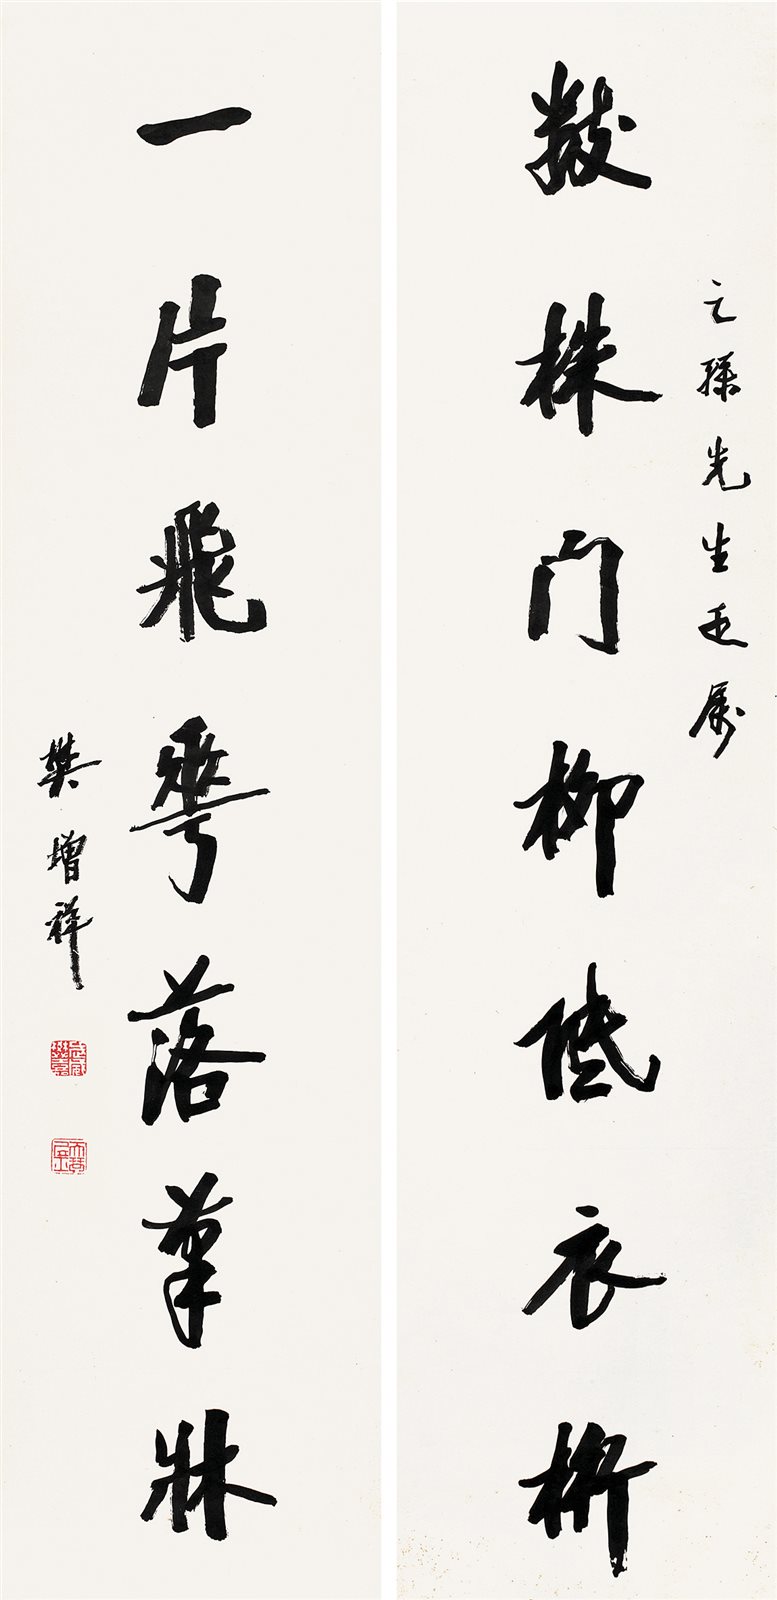 之孫先生正屬
數株門柳低衣桁
一片飛華落筆牀
樊增祥